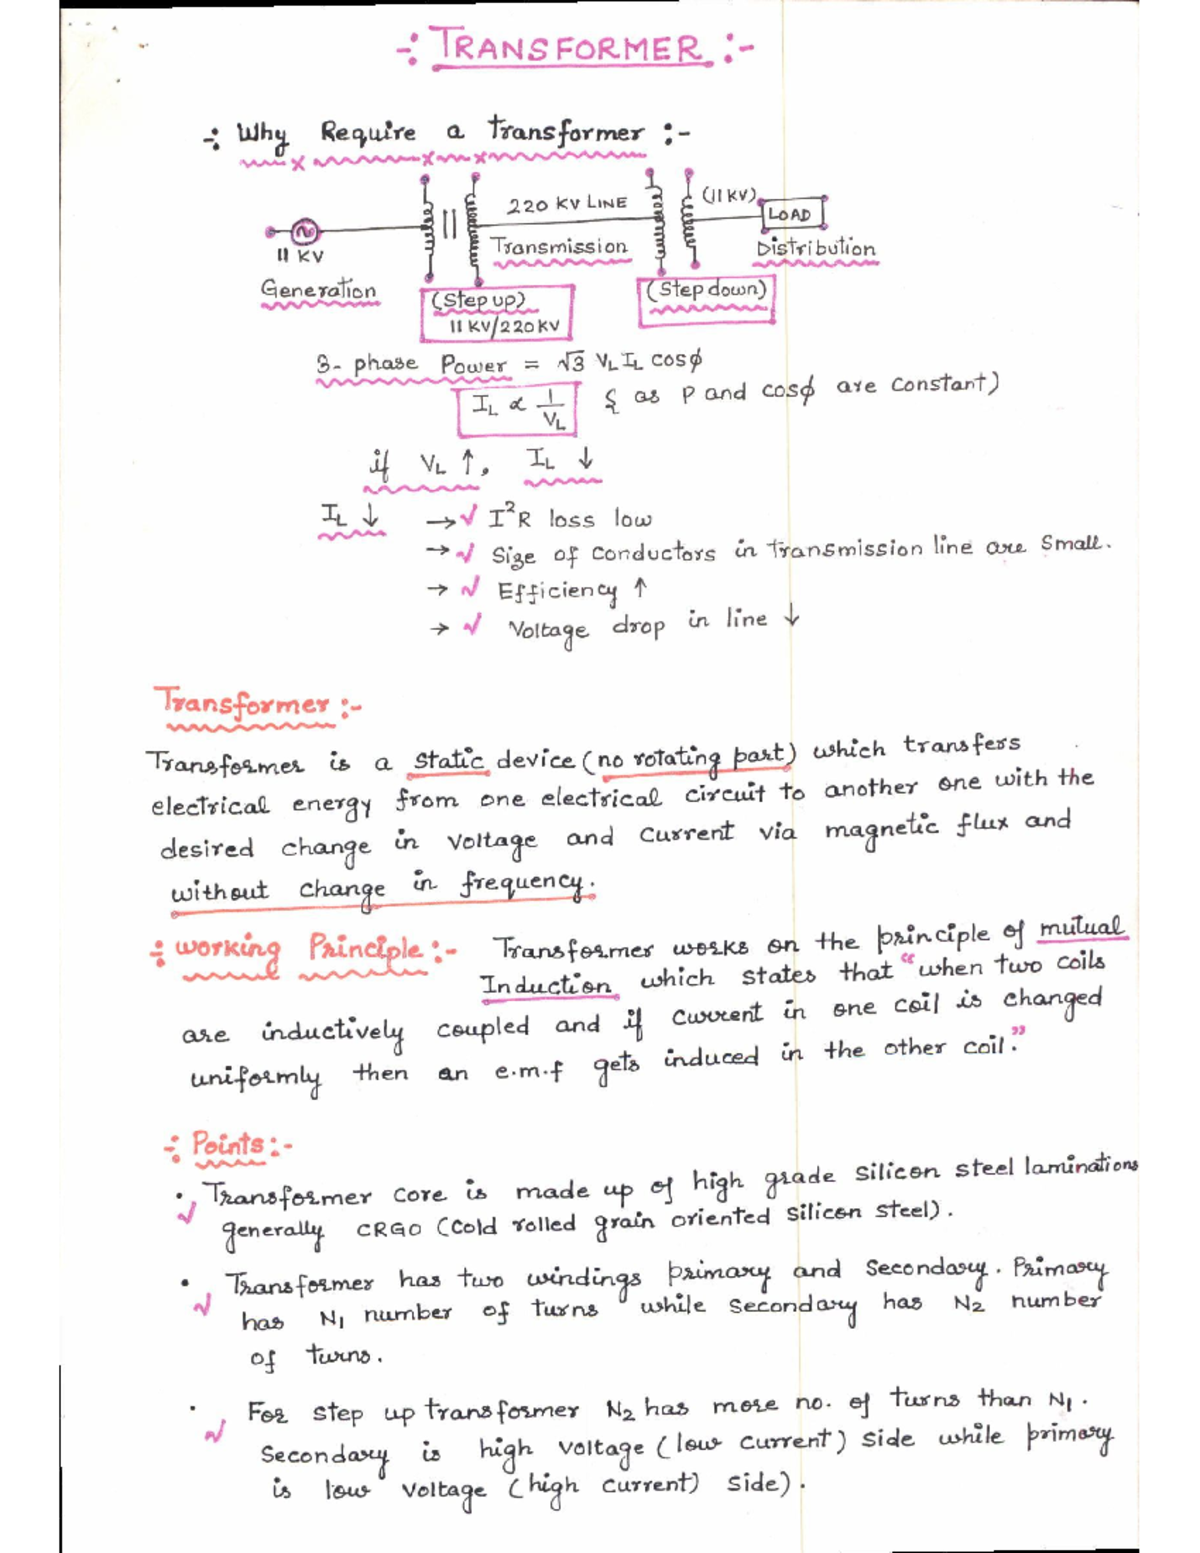 -: TRANSFORMER :-
-: Why Require a transformer :-
220 KV LINE
(11 KV)
LOAD
11 KV
Transmission
Distribution
Generation
(Step up)
11 KV/220KV
(Step down)
3- phase Power = √3 VL IL cosφ
IL ∝ 1/VL { as P and cosφ are constant)
if VL ↑, IL ↓
IL ↓ → √ I²R loss low
→ √ Size of conductors in transmission line are small.
→ √ Efficiency ↑
→ √ Voltage drop in line ↓
Transformer :-
Transformer is a static device (no rotating part) which transfers
electrical energy from one electrical circuit to another one with the
desired change in voltage and current via magnetic flux and
without change in frequency.
÷ Working Principle :- Transformer works on the principle of mutual
Induction which states that "when two coils
are inductively coupled and if current in one coil is changed
uniformly then an e.m.f gets induced in the other coil."
-: Points :-
• √ Transformer core is made up of high grade silicon steel laminations
generally CRGO (Cold rolled grain oriented silicon steel).
• √ Transformer has two windings primary and secondary. Primary
has N1 number of turns while secondary has N2 number
of turns.
• √ For step up transformer N2 has more no. of turns than N1.
Secondary is high voltage (low current) side while primary
is low voltage (high current) side).